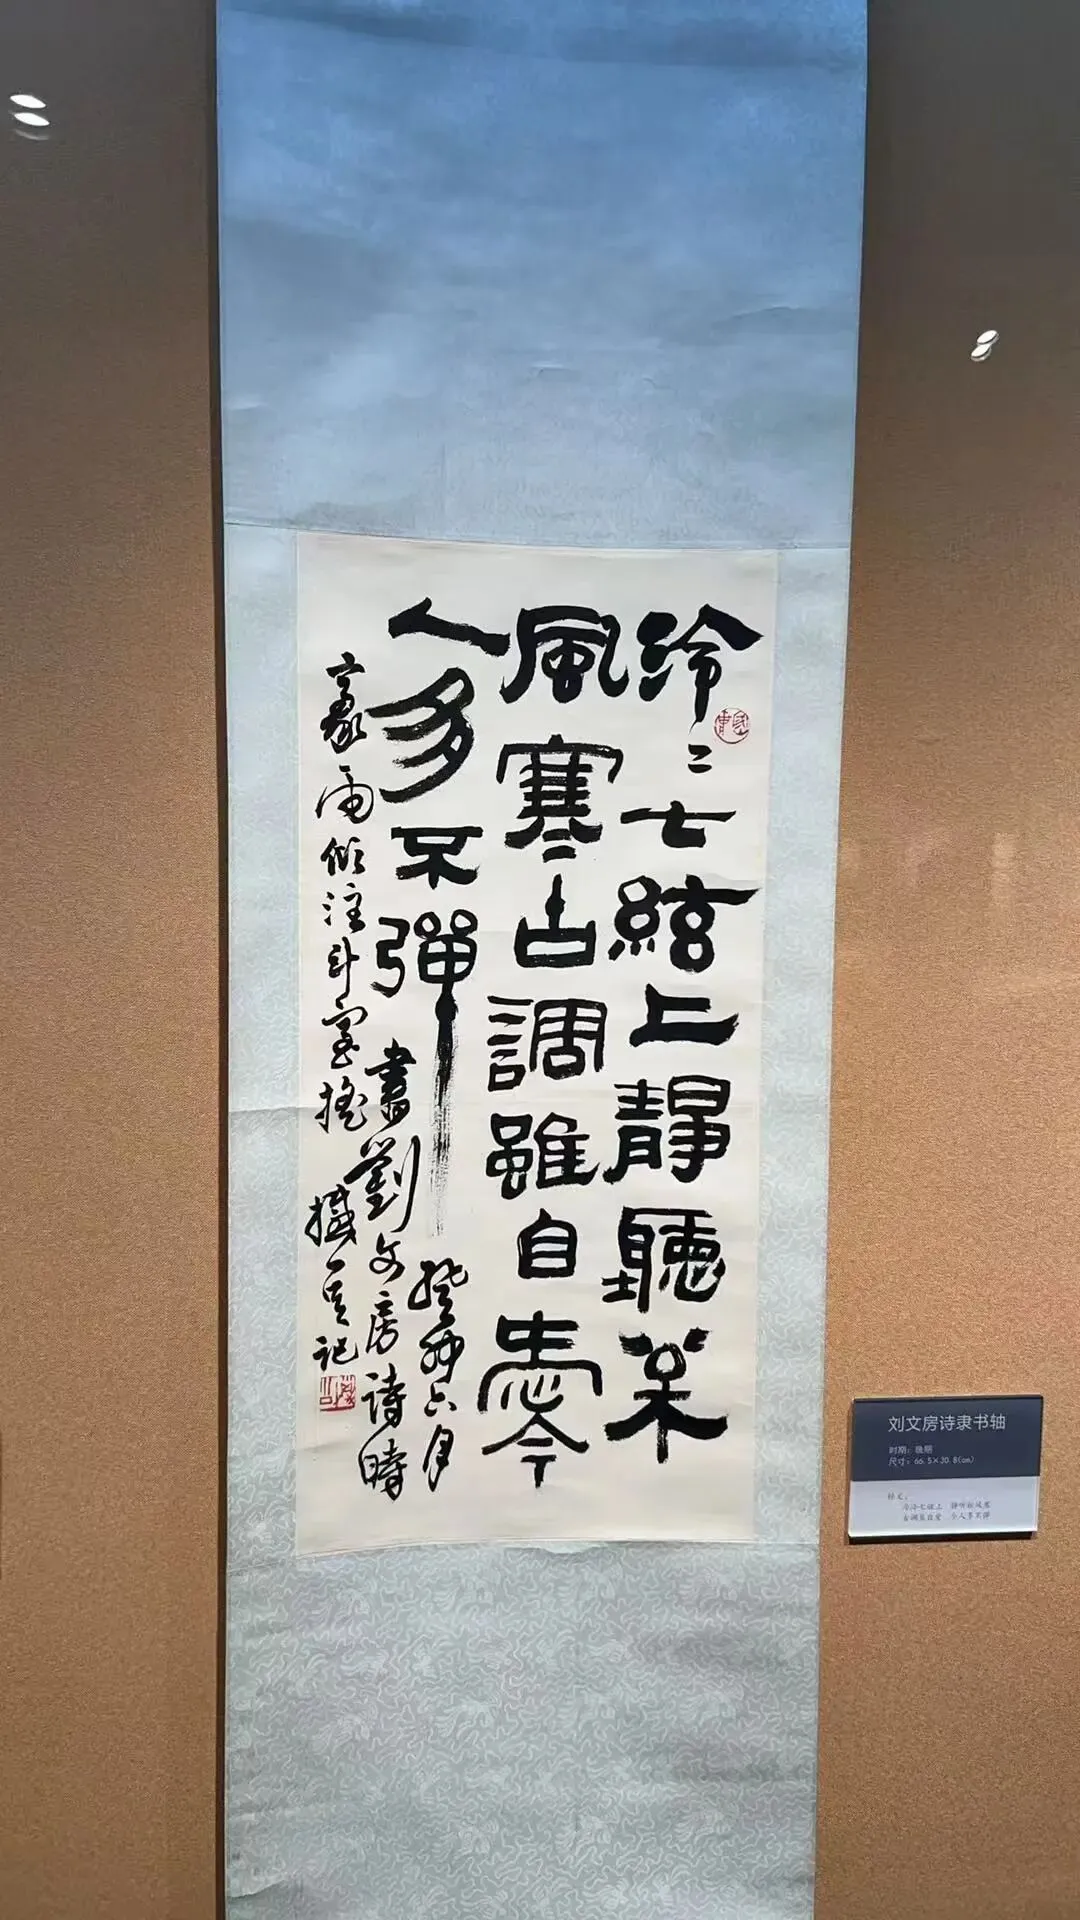 泠〻七絃上靜聽枀
風寒古調雖自愛今
人多不彈
癸卯六月
書劉文房詩時
豪雨傾注斗室搖撼記
刘文房诗隶书轴
时期：晚期
尺寸：66.5×30.8(cm)
释文：
泠泠七弦上 静听松风寒
古调虽自爱 今人多不弹